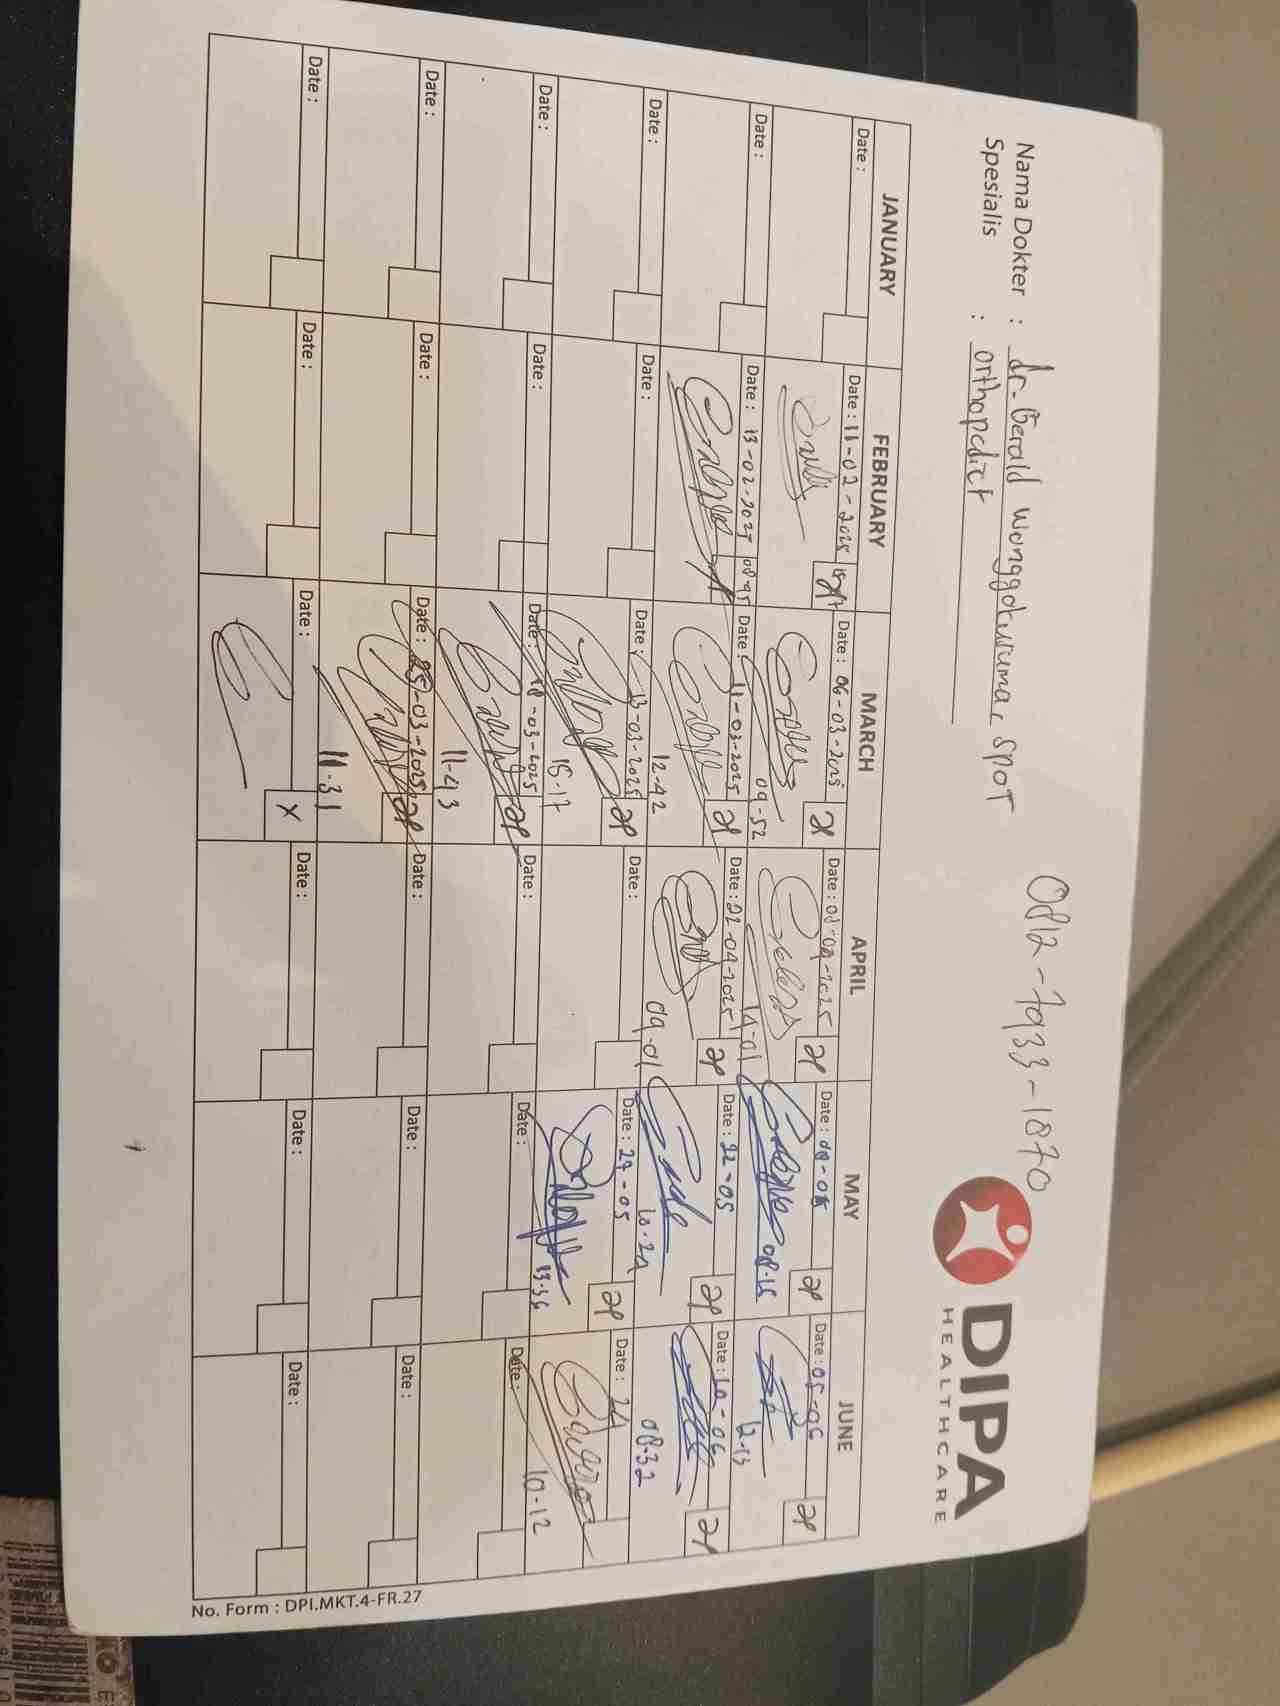 Nama Dokter : dr. Gerald Wonggokusuma, SpOT
Spesialis : Orthopedict
0812-7933-1870
DIPA
HEALTHCARE
JANUARY FEBRUARY MARCH APRIL MAY JUNE
Date : Date : 11-02-2025 Date : 06-03-2025 Date : 08-04-2025 Date : 08-05 Date : 05-06
09-52 14-01 08-15 12-13
Date : Date : 13-02-2025 Date : 11-03-2025 Date : 22-04-2025 Date : 22-05 Date : 10-06
12-42 09-01 10-24 08-32
Date : Date : Date : 13-03-2025 Date : Date : 29-05 Date : 24
15-17 13-36 10-12
Date : Date : Date : 18-03-2025 Date : Date : Date :
11-43
Date : Date : Date : 25-03-2025 Date : Date : Date :
11-31
Date : Date : Date : Date : Date : Date :
X
No. Form : DPI.MKT.4-FR.27